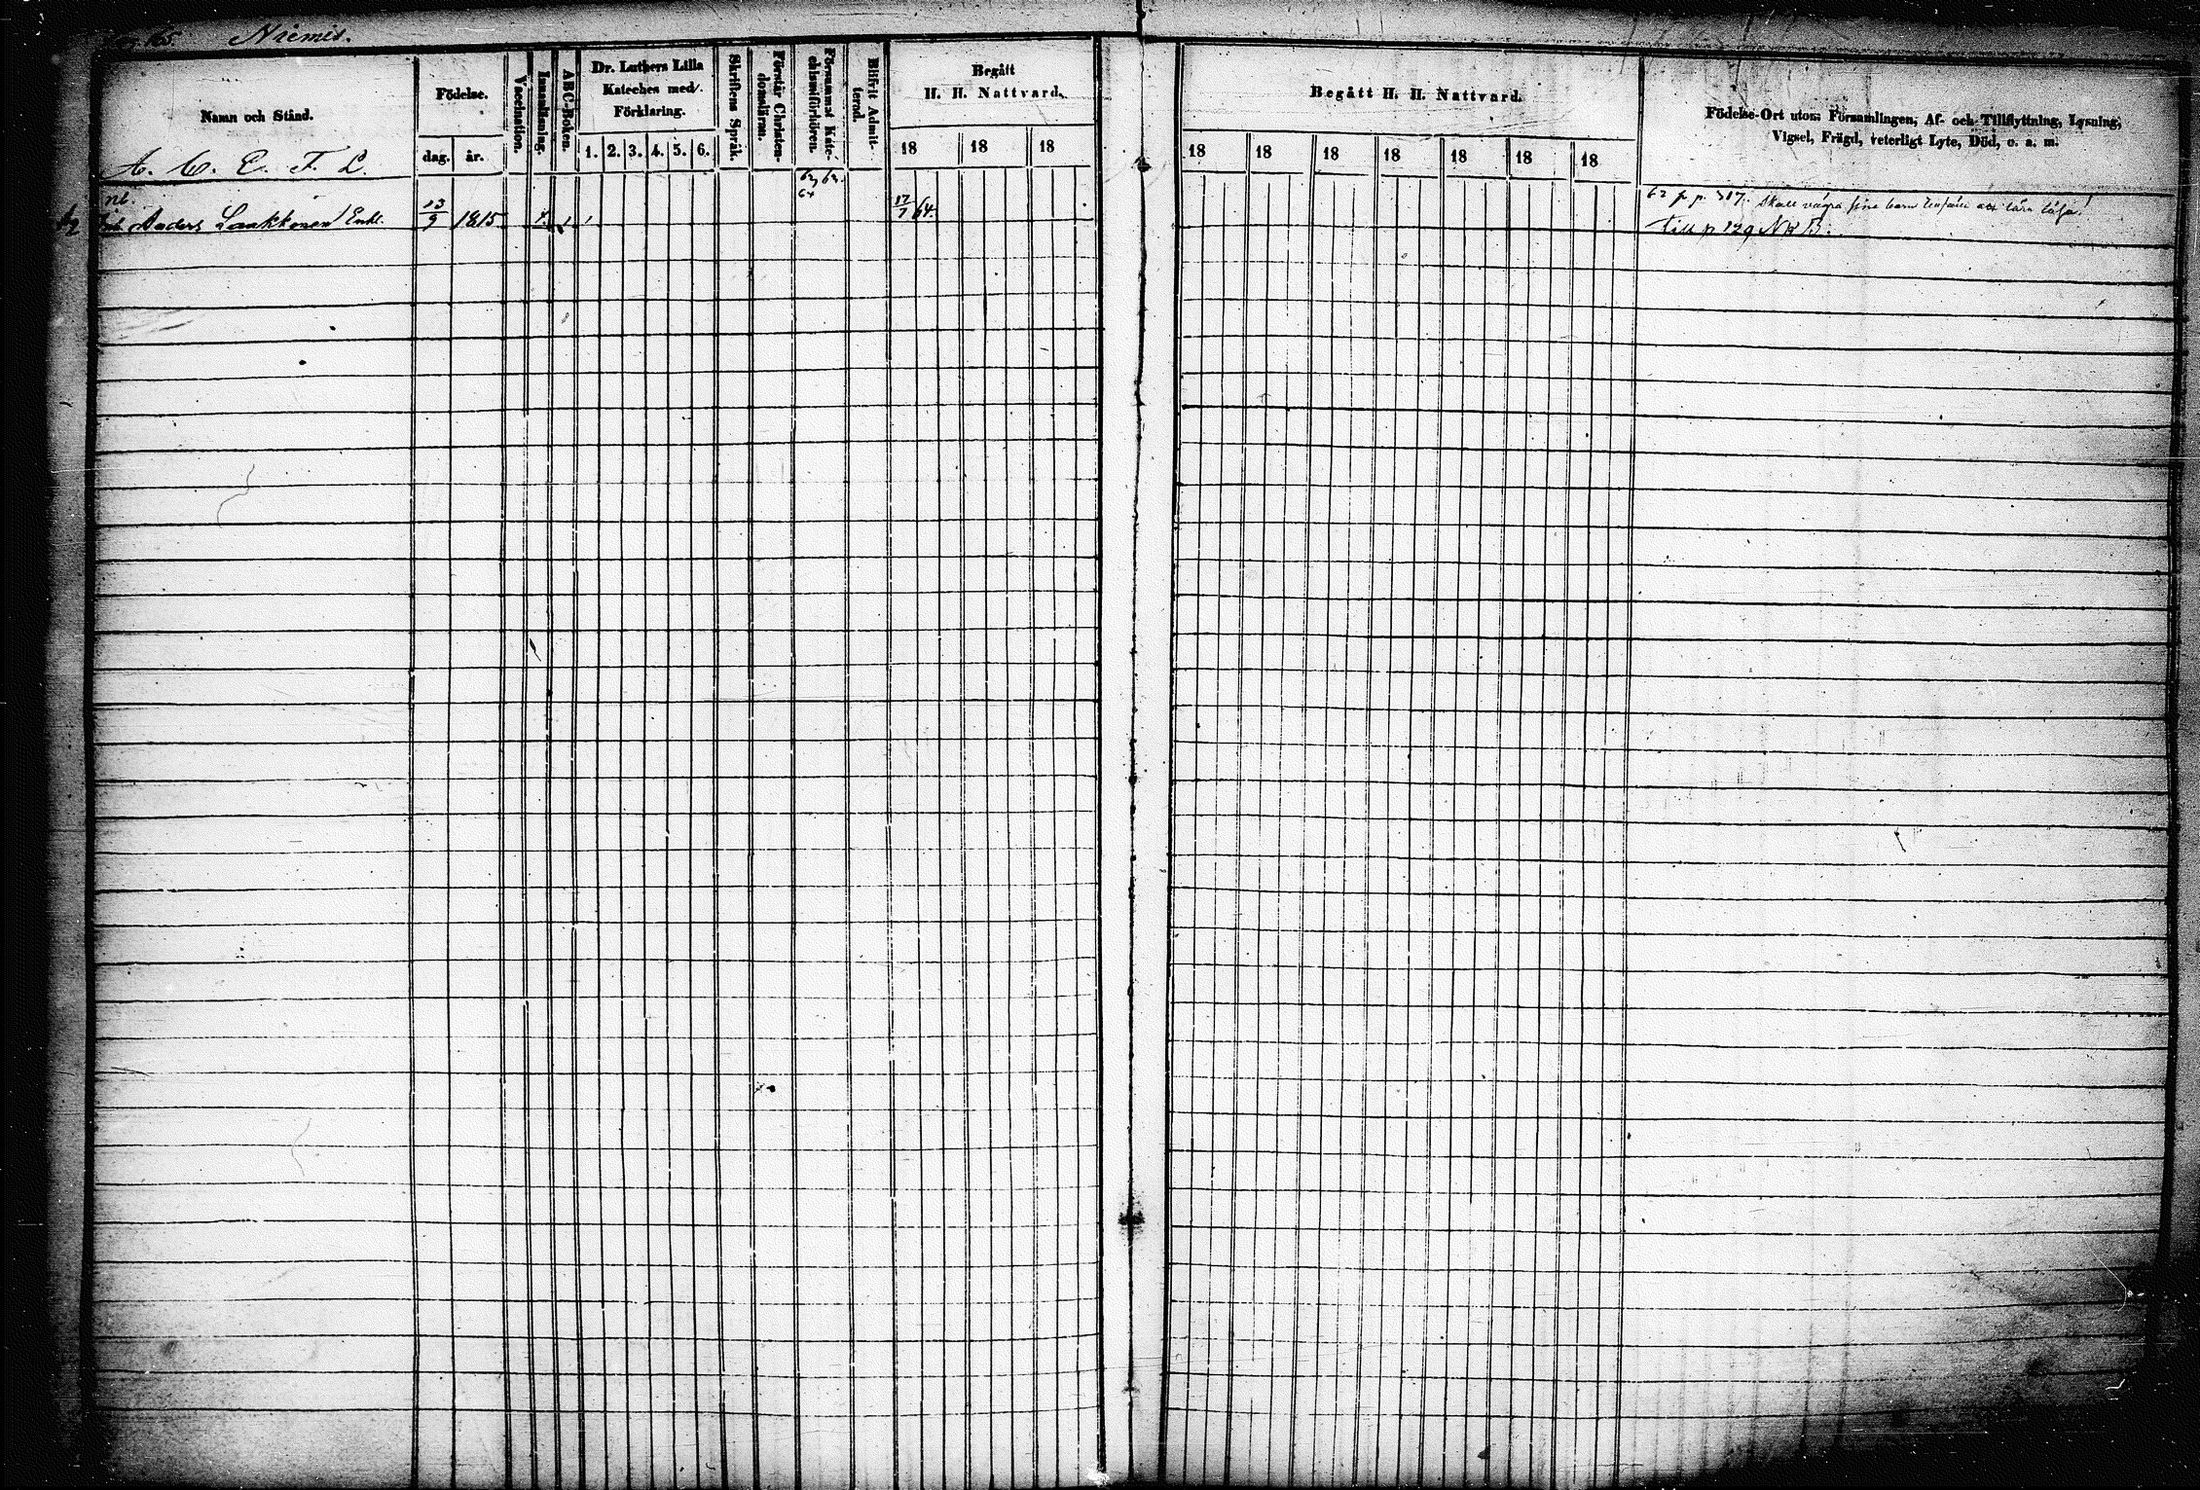 165. Niemis.
Namn och Stånd.
Födelse.
dag. år.
Vaccination.
Innanläsning.
ABC-Boken.
Dr. Luthers Lilla
Kateches med
Förklaring.
1. 2. 3. 4. 5. 6.
Skriftens Språk.
Förstår Christen-
domsläran.
Försummat Kate-
chismiförhören.
Blifvit Admit-
terad.
Begått
H. H. Nattvard.
18 18 18
Begått H. H. Nattvard.
18 18 18 18 18 18 18
Födelse-Ort utom Församlingen, Af- och Tillflyttning, Lysning,
Vigsel, Frägd, veterligt Lyte, Död, o. a. m.
A. C. E. F. L.
62, 63.
64
nb.
Anders Laukkanen Enkl. 13/9 1815 17/7 64.
62 fr p. 317. Skall vägra sine barn att lära läsa!
Till p 129 N B.